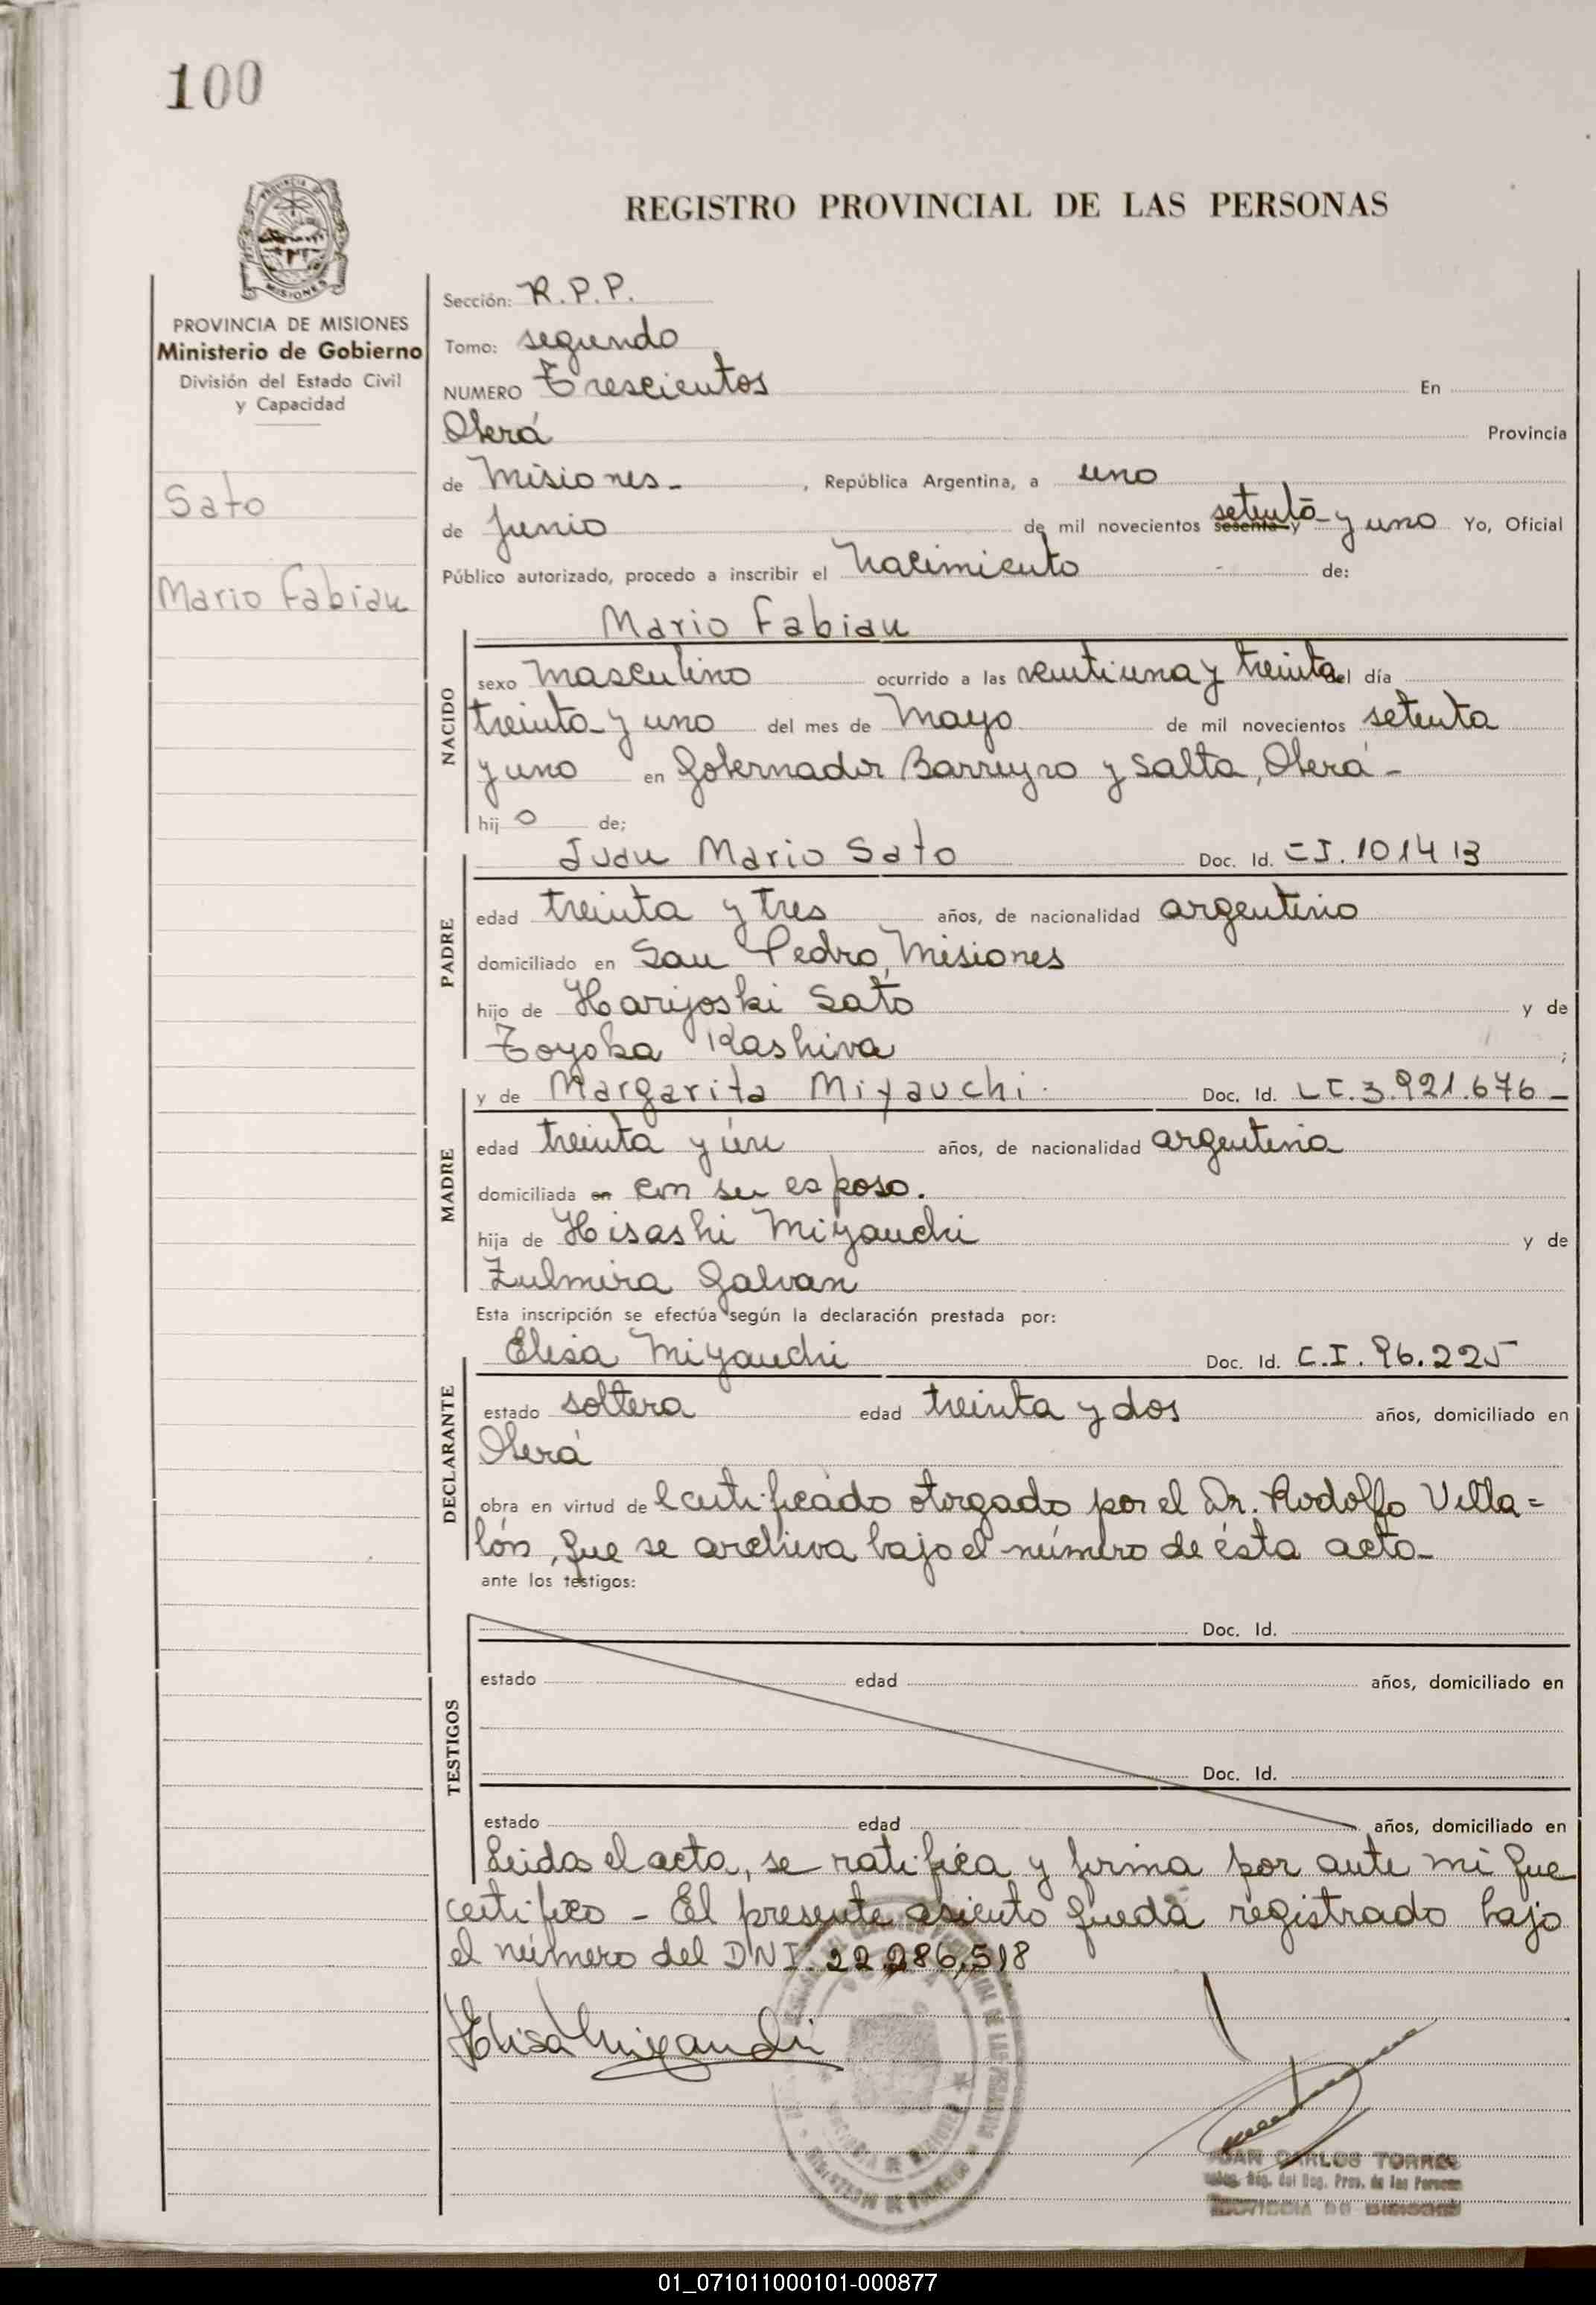 100
REGISTRO PROVINCIAL DE LAS PERSONAS
MISIONES
PROVINCIA DE MISIONES
Ministerio de Gobierno
División del Estado Civil
y Capacidad
Sato
Mario Fabian
Sección: R.P.P.
Tomo: segundo
NUMERO Trescientos En
Oberá Provincia
de Misiones- , República Argentina, a uno
de Junio de mil novecientos sesenta y setenta y uno Yo, Oficial
Público autorizado, procedo a inscribir el Nacimiento de:
NACIDO
Mario Fabian
sexo masculino ocurrido a las veintiuna y treinta del día
treinta y uno del mes de Mayo de mil novecientos setenta
y uno en Gobernador Barreyro y Salta, Oberá-
hij o de;
PADRE
Juan Mario Sato Doc. Id. C.I. 101413
edad treinta y tres años, de nacionalidad argentino
domiciliado en San Pedro, Misiones
hijo de Harijoski Sato y de
Toyoka Kashiva ;
MADRE
y de Margarita Miyauchi. Doc. Id. LC. 3.921.676-
edad treinta y un años, de nacionalidad argentina
domiciliada en con su esposo.
hija de Hisashi Miyauchi y de
Zulmira Galvan
Esta inscripción se efectúa según la declaración prestada por:
DECLARANTE
Elisa Miyauchi Doc. Id. C.I. 96.225
estado soltera edad treinta y dos años, domiciliado en
Oberá
obra en virtud de l certificado otorgado por el Dr. Rodolfo Villa=
lón, que se archiva bajo el número de ésta acta-
ante los testigos:
TESTIGOS
Doc. Id.
estado edad años, domiciliado en
Doc. Id.
estado edad años, domiciliado en
Leida el acta, se ratifica y firma por ante mi que
certifico - El presente asiento queda registrado bajo
el número del DNI. 22.286.518
Elisa Miyauchi
JUAN CARLOS TORRES
del Reg. Prov. de las Personas
PROVINCIA DE MISIONES
01_071011000101-000877